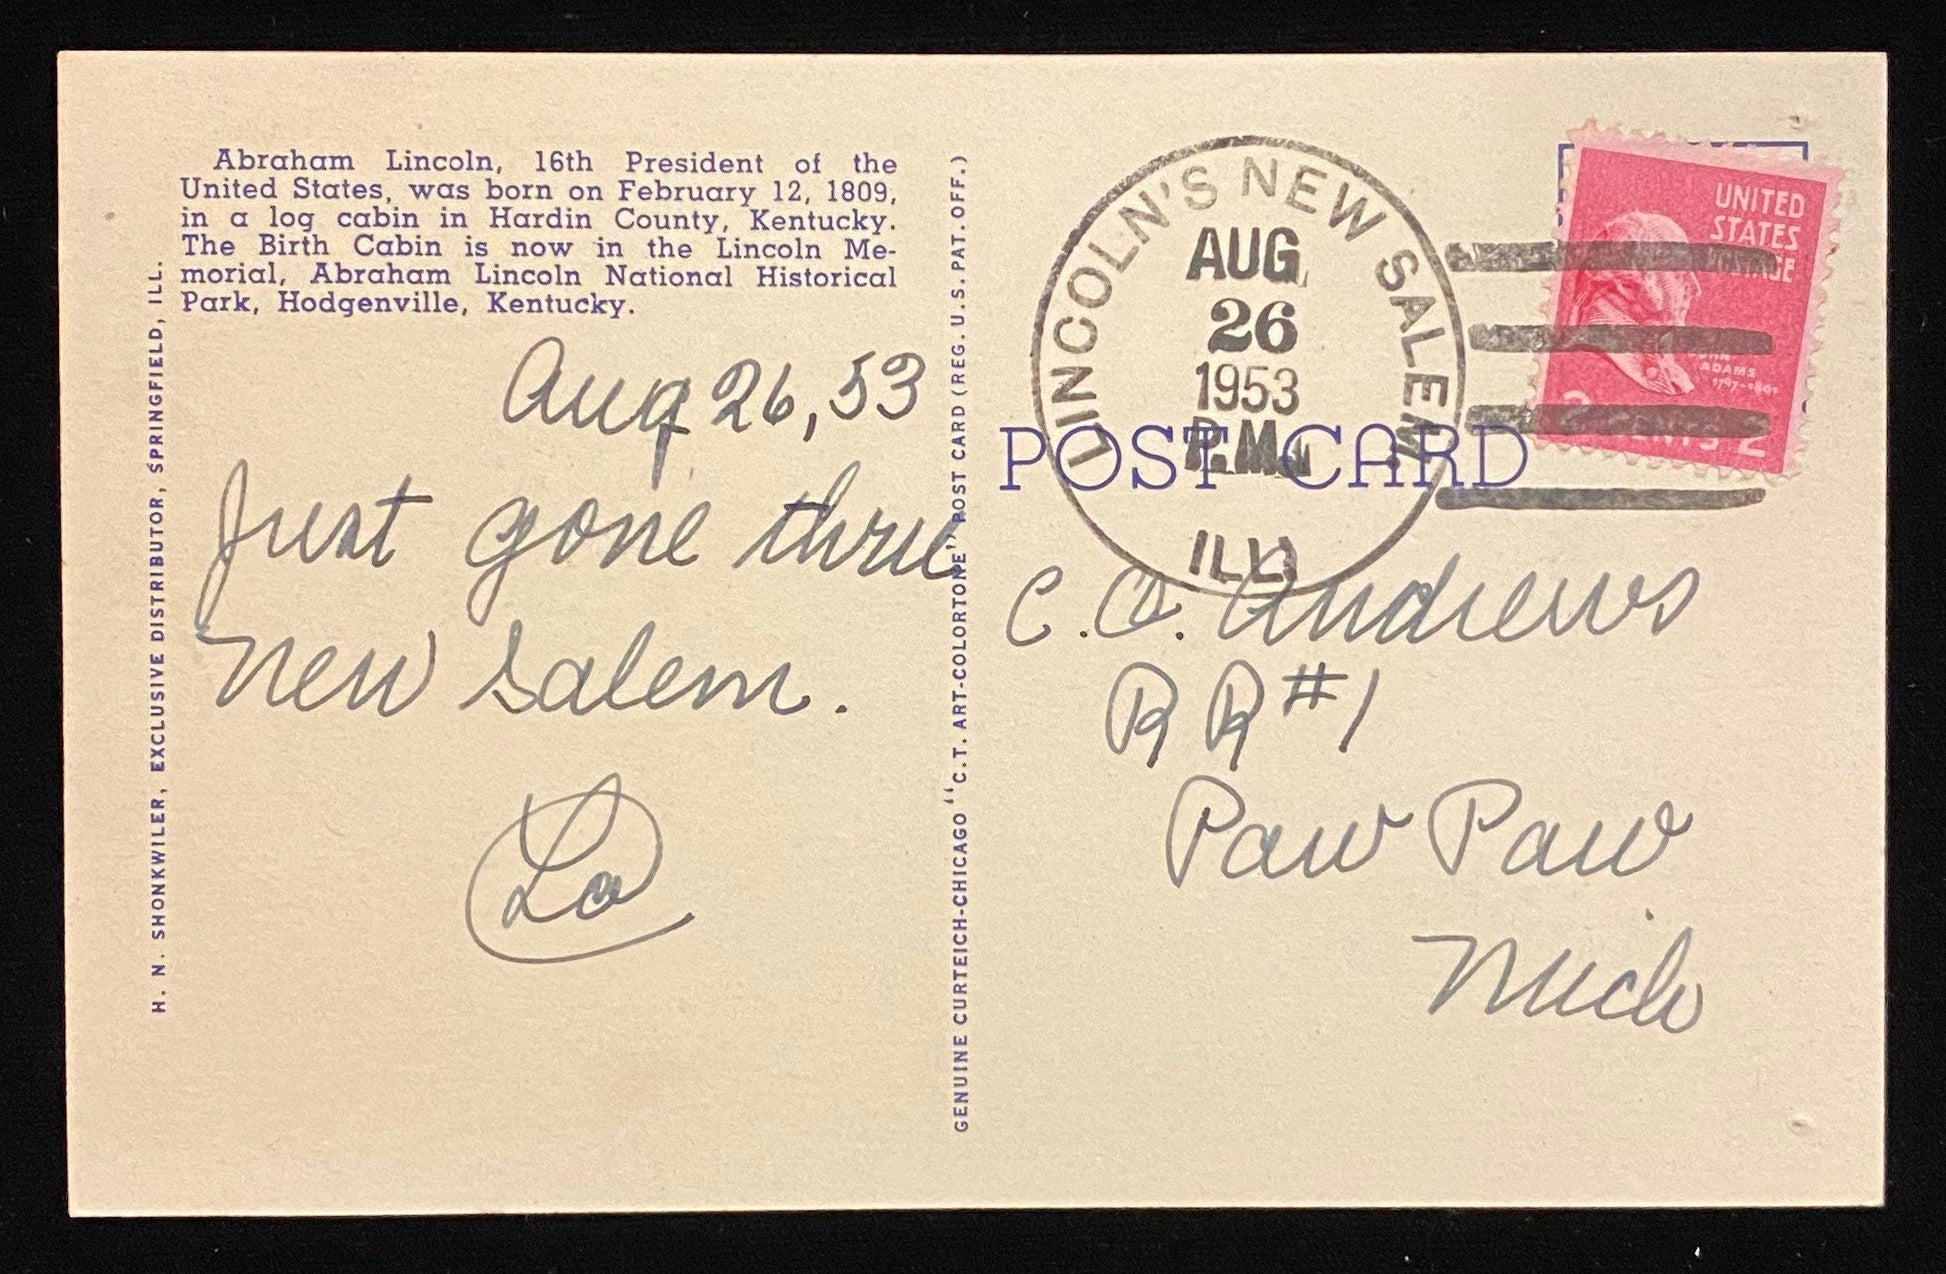 Abraham Lincoln, 16th President of the
United States, was born on February 12, 1809,
in a log cabin in Hardin County, Kentucky.
The Birth Cabin is now in the Lincoln Me-
morial, Abraham Lincoln National Historical
Park, Hodgenville, Kentucky.
H. N. SHONKWILER, EXCLUSIVE DISTRIBUTOR, SPRINGFIELD, ILL.
Aug 26, 53
Just gone thru
New Salem.
Lo
GENUINE CURTEICH-CHICAGO "C.T. ART-COLORTONE" POST CARD (REG. U.S. PAT. OFF.)
LINCOLN'S NEW SALEM
AUG
26
1953
P.M.
ILL.
POST CARD
UNITED
STATES
POSTAGE
JOHN
ADAMS
1797-1801
2 CENTS 2
C. O. Andrews
R R #1
Paw Paw
Mich